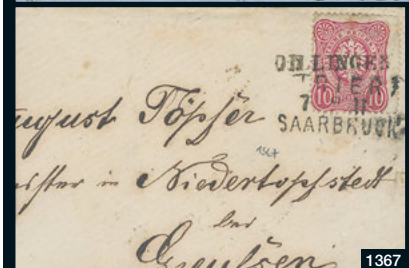 DILLINGEN
TRIER
7 11
SAARBRUCK
10 10
August Töpfer
in Niedertopfstedt
bei
Greußen
1367
1367